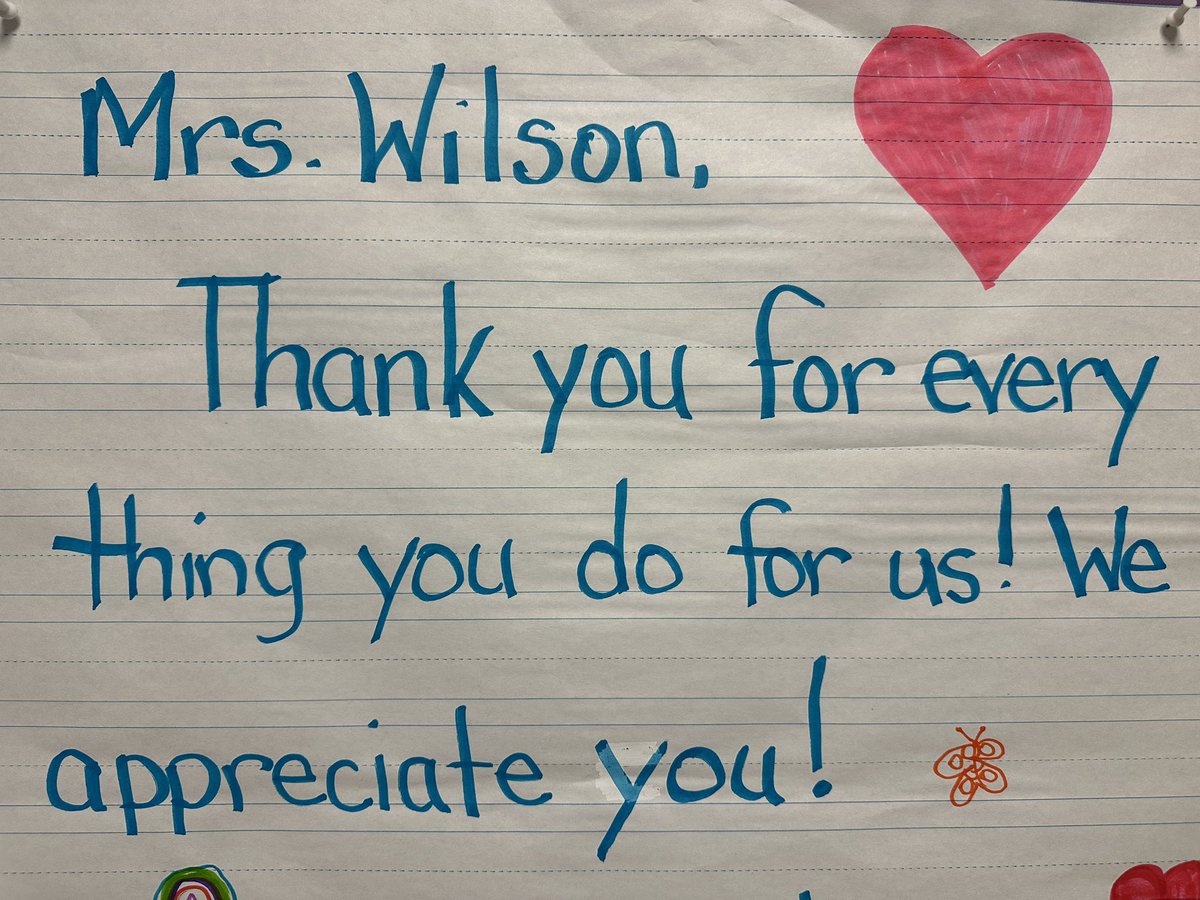 Mrs. Wilson,
Thank you for every
thing you do for us! We
appreciate you!